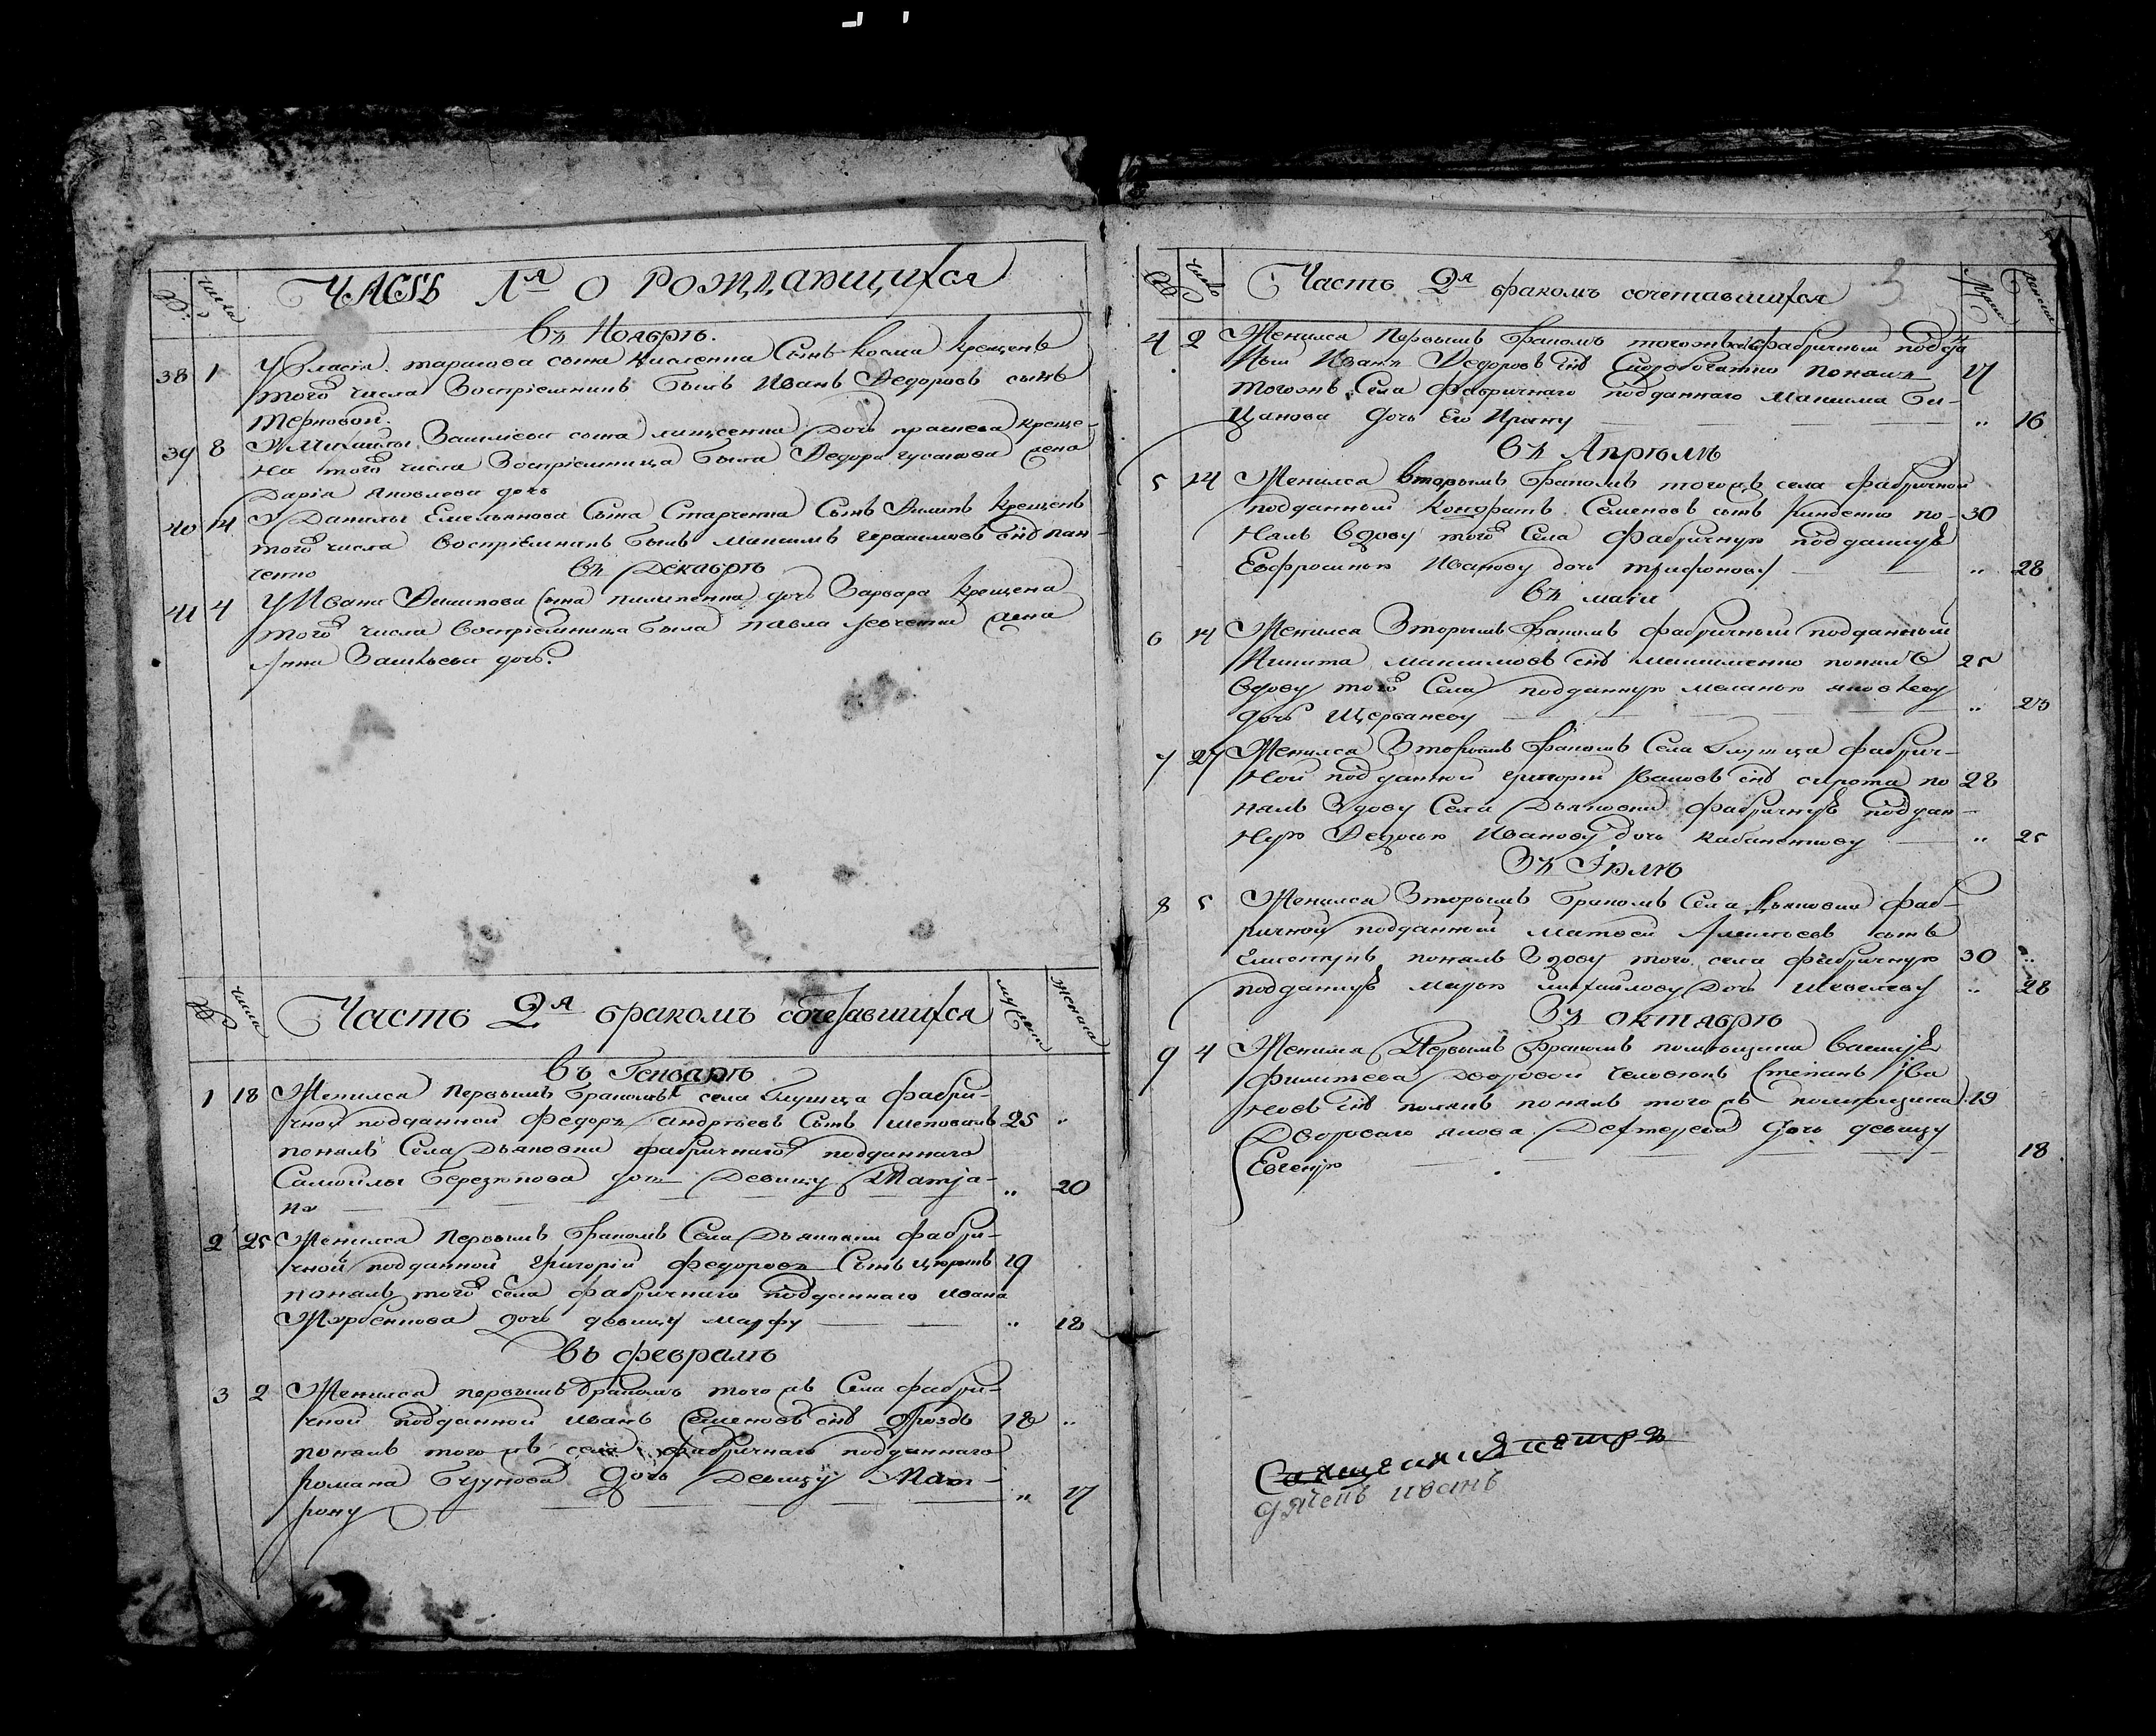 №: числа Часть 1я о рождающихся
въ Ноябрѣ.
38 1 У Власія тарасова сына Кисленка Сынъ косма крещенъ
того числа Воспріемникъ былъ Иванъ Федоровъ сынъ
терновой.
39 8 У Михаилы Васильева сына дочь креще-
на того числа Воспріемница была Федора гусакова жена
Дарія Яковлева дочь
40 14 У Данилы Емельянова Сына Старченка Сынъ Филипъ крещенъ
того числа воспріемникъ былъ максимъ герасимовъ снъ пан-
ченко
въ Декабрѣ
41 4 У Ивана Филипова сына пилипенка дочь Варвара крещена
того числа воспріемница была павла левченка жена
Анна Васильева дочь.
№ числа Часть 2я бракомъ сочетавшихся мужеска женска
въ Генварѣ
1 18 Женился первымъ бракомъ села Глушца фабри-
чной подданной федоръ андрѣевъ Сынъ шеповалъ 25 "
понялъ Села Дьяковки фабричнаго подданнаго
Самойлы Березюкова дочь Девицу Татія-
на " 20
2 25 Женился первымъ бракомъ Села Дьяковки фабри-
чной подданной Григорій федоровъ Сынъ цюринъ 19
понялъ того села фабричнаго подданнаго ивана
дочь девицу марфу " 18
въ февралѣ
3 2 Женился первымъ бракомъ того жъ Села фабри-
чной подданной иванъ Семеновъ снъ дроздъ 18 "
понялъ того жъ села фабричнаго подданнаго
романа Бгунова дочь Девицу Мат-
рону " 17
№ число Часть 2я бракомъ сочетавшихся 3 мужеска женска
4 2 Женился первымъ бракомъ того жъ села фабричный подда-
ный Иванъ Федоровъ снъ Сидоробатко понялъ 17
того жъ Села фабричнаго подданнаго Максима Би-
цанова дочь Его Ирину " 16
въ Апрѣлѣ
5 14 Женился вторымъ бракомъ того жъ села фабричной
подданный кондратъ Семеновъ сынъ по- 30
нялъ вдову того Села фабричную подданную
Евфросинью Иванову дочь трифонову " 28
въ маіи
6 14 Женился Вторымъ бракомъ фабричный подданный
Никита максимовъ снъ понялъ 25
вдову того Села подданную меланью яковлеву
дочь Щербакову " 23
7 27 Женился Вторымъ бракомъ Села Глушца фабрич-
ной подданной григорій івановъ снъ сирота по 28
нялъ Вдову Села Дьяковки фабричную поддан-
ную Федосью Иванову дочь кабаненкову " 25
Въ Іюлѣ
8 5 Женился Вторымъ бракомъ Села Дьяковки фаб-
ричной подданный матвей Алексѣевъ сынъ
понялъ Вдову того села фабричную 30 "
подданную марью михайлову Дочь Шевелеву " 28
Въ октябрѣ
9 4 Женился Первымъ бракомъ помѣщика василія
филипьева Дворовой человѣкъ Степанъ іва
новъ снъ понялъ того жъ помѣщика 19
Двороваго якова Дегтерева дочь девицу
Евгенію 18
Священникъ петръ
дячекъ иванъ